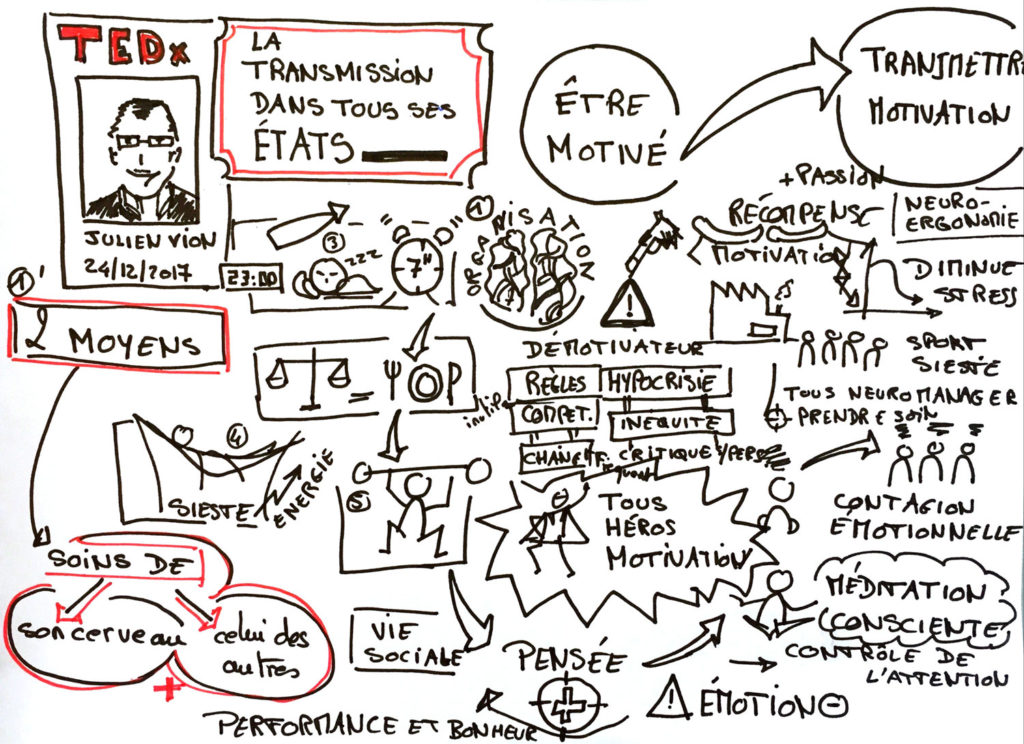 TEDx
JULIEN VION
24/12/2017
LA
TRANSMISSION
DANS TOUS SES
ÉTATS
ÊTRE
MOTIVÉ
TRANSMETTRE
MOTIVATION
1'
2 MOYENS
SOINS DE
son cerveau
+
celui des
autres
23:00
3
zzz
7H
1'
ORGANISATION
=
4
SIESTE
ENERGIE
5
VIE
SOCIALE
PERFORMANCE ET BONHEUR
!
DÉMOTIVATEUR
RÈGLES
HYPOCRISIE
COMPET.
INÉQUITÉ
CRITIQUE
TOUS
HÉROS
MOTIVATION
PENSÉE
+
! ÉMOTION -
+PASSION
RÉCOMPENSE
MOTIVATION
NEURO-
ERGONOMIE
DIMINUE
STRESS
SPORT
SIESTE
TOUS NEUROMANAGER
PRENDRE SOIN
CONTAGION
EMOTIONNELLE
MÉDITATION
(CONSCIENTE)
CONTRÔLE DE
L'ATTENTION